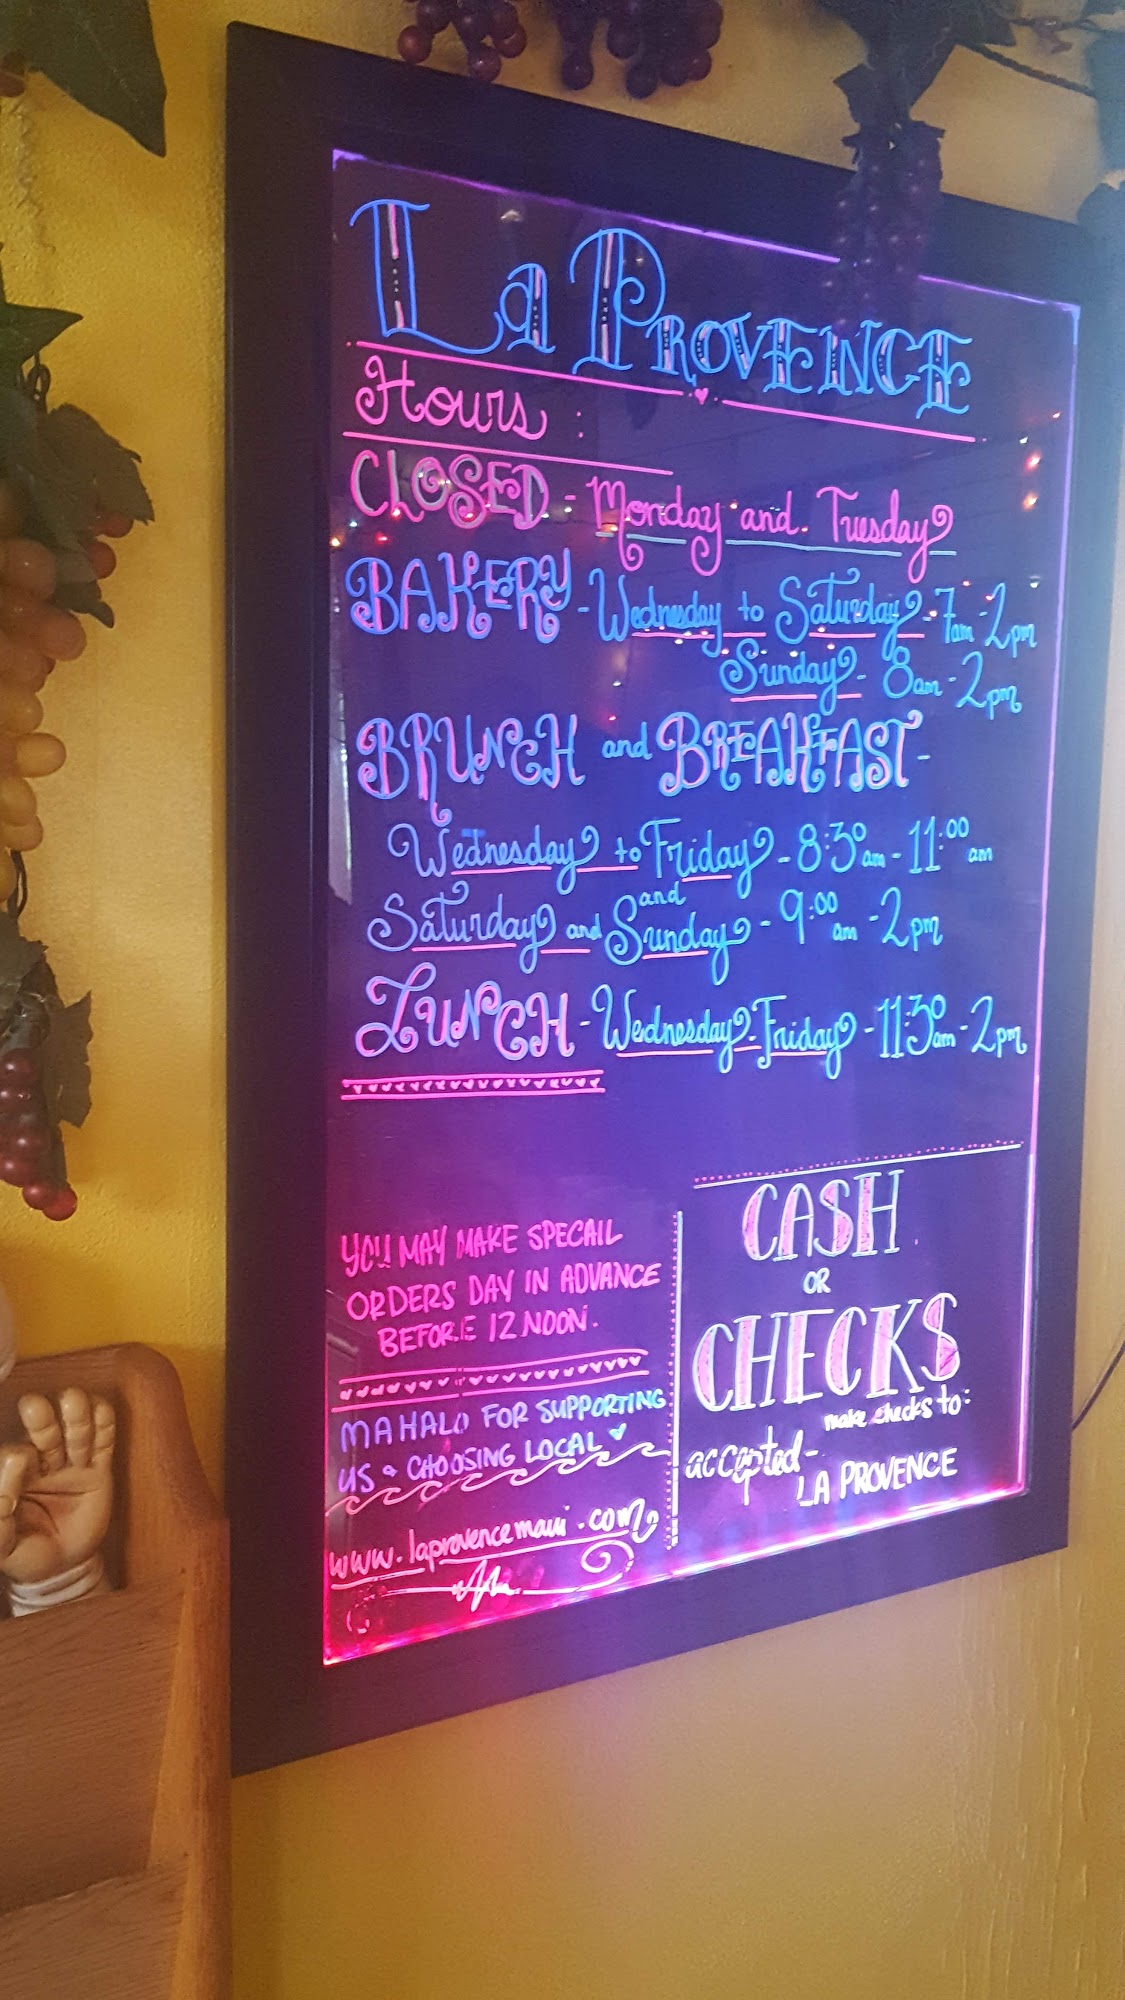 La PROVENCE
Hours :
CLOSED - Monday and Tuesday
BAKERY - Wednesday to Saturday - 7am - 2pm
Sunday - 8am - 2pm
BRUNCH and BREAKFAST -
Wednesday to Friday - 8:30am - 11:00am
and
Saturday and Sunday - 9:00am - 2pm
LUNCH - Wednesday - Friday - 11:30am - 2pm
YOU MAY MAKE SPECAIL
ORDERS DAY IN ADVANCE
BEFORE 12 NOON.
MAHALO FOR SUPPORTING
US & CHOOSING LOCAL
www.laprovencemaui.com
CASH
OR
CHECKS
make checks to:
accepted -
LA PROVENCE